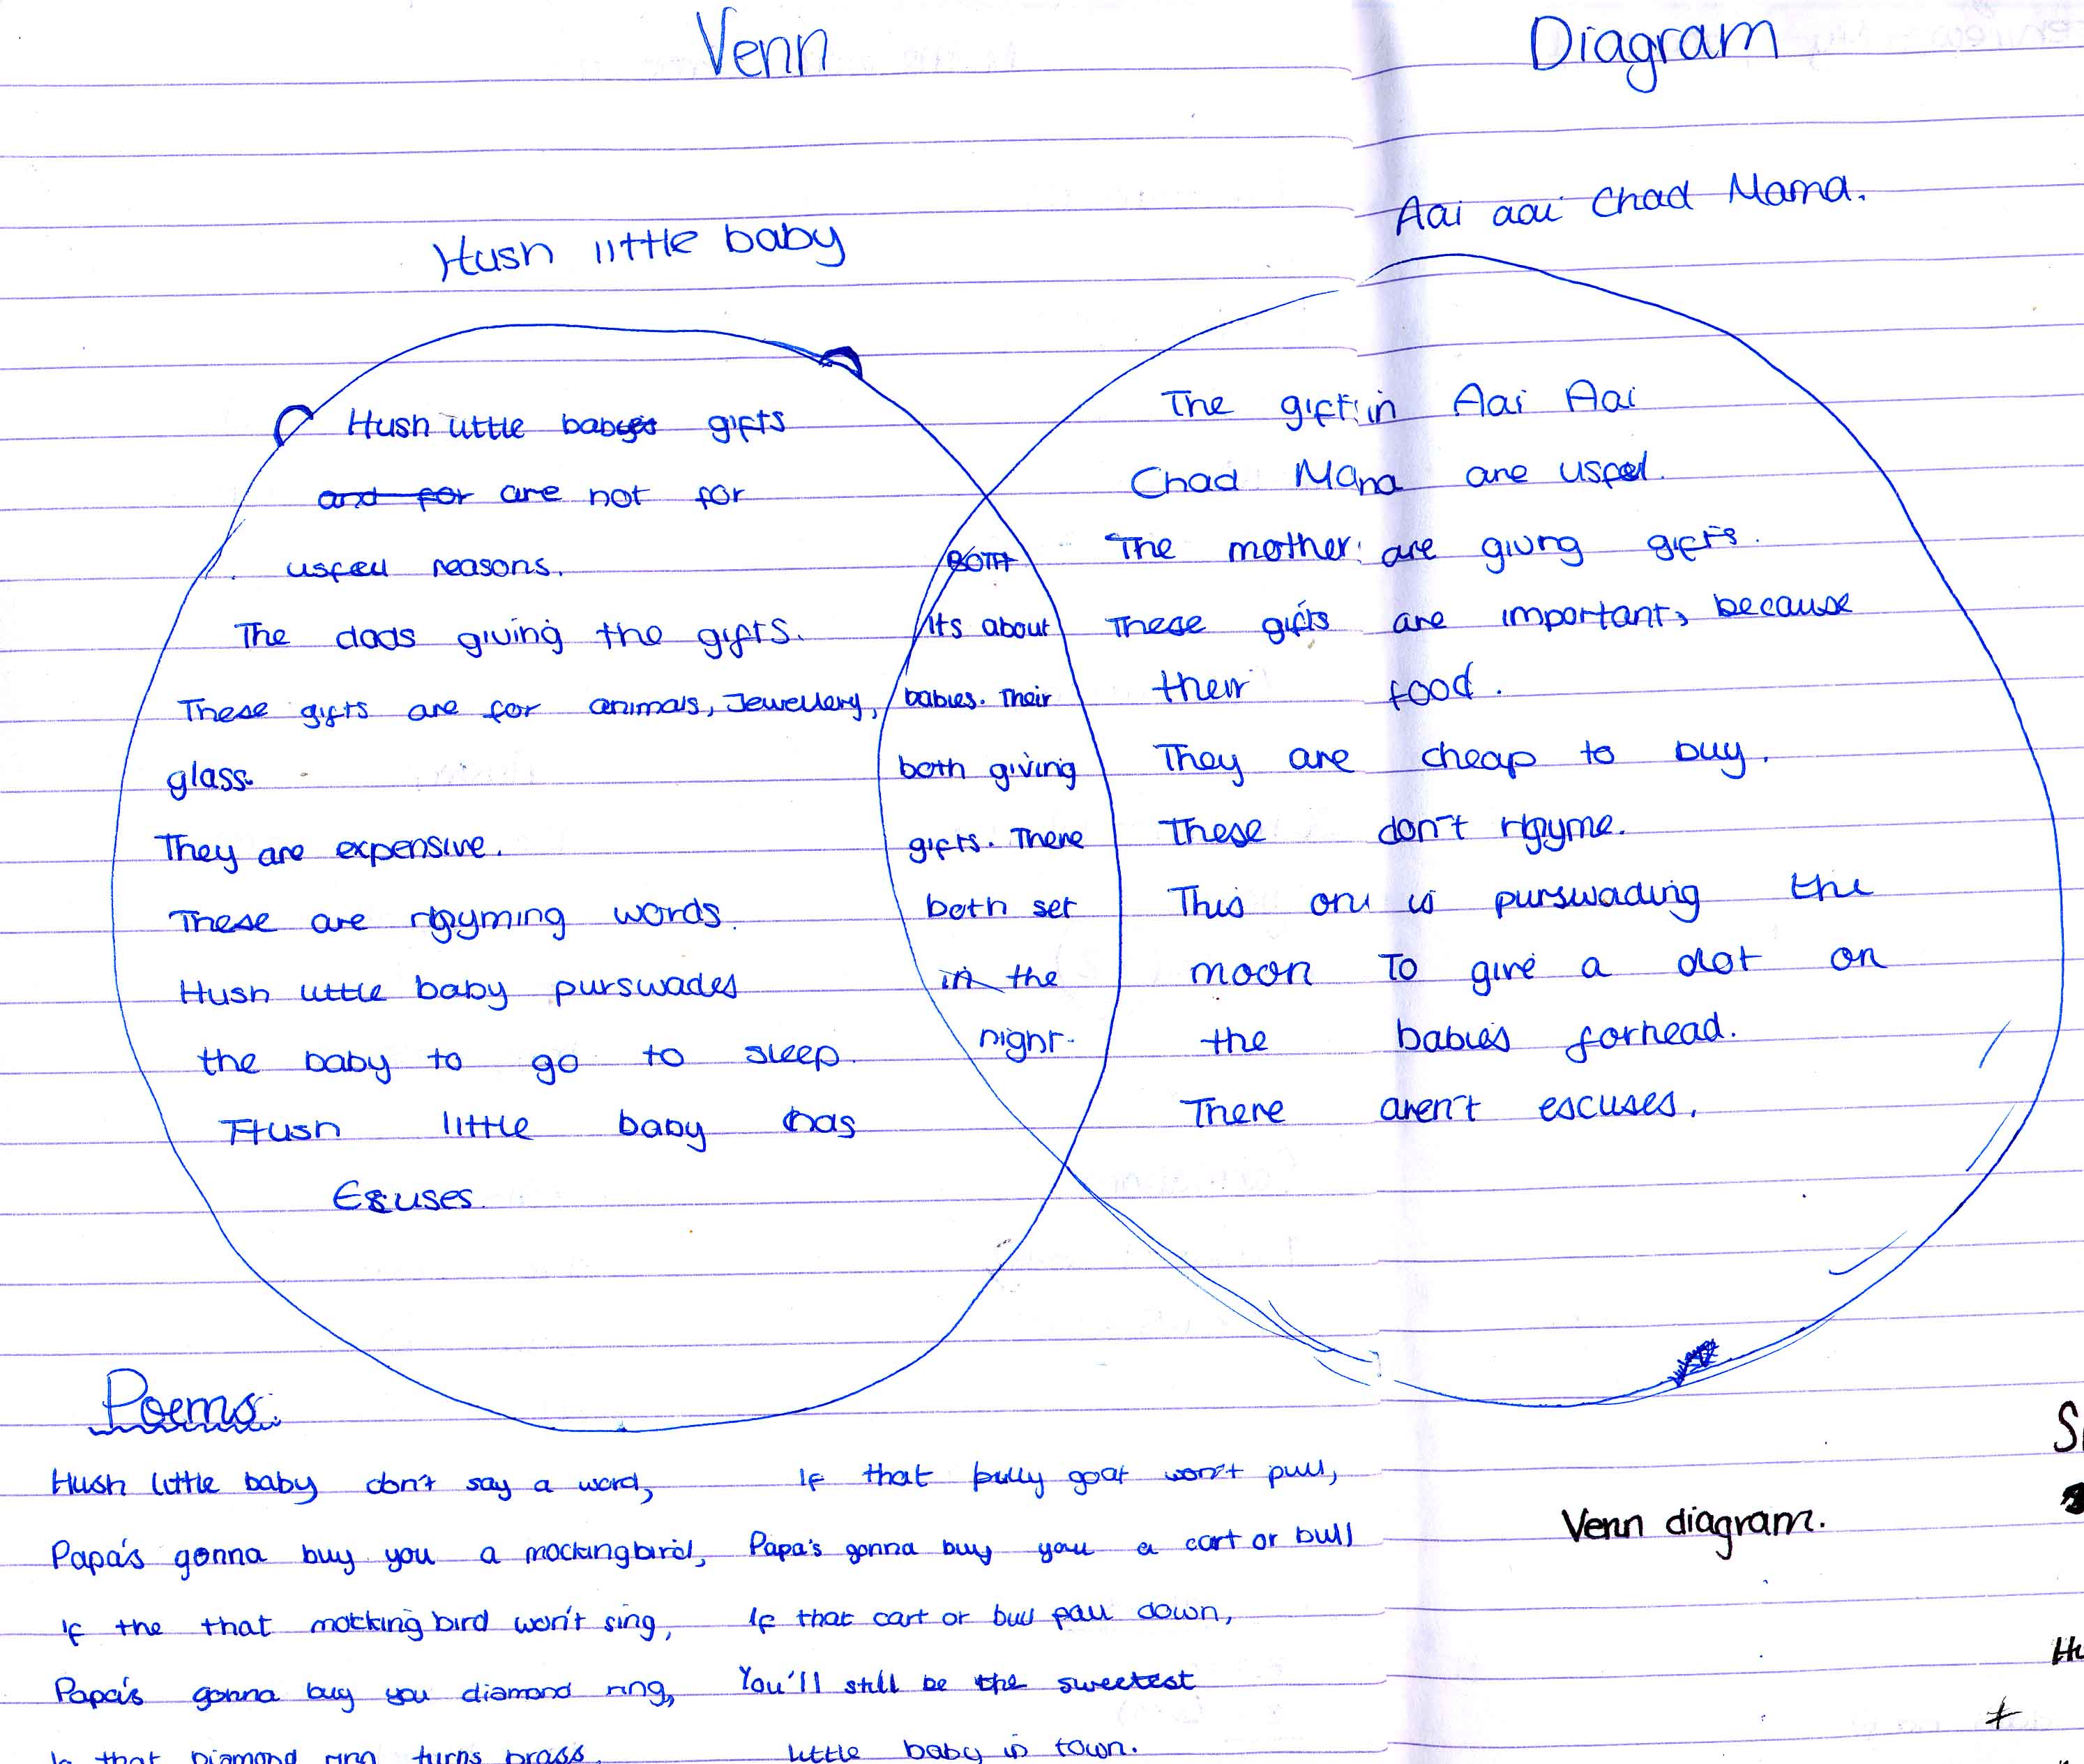 Venn Diagram
Hush little baby
Aai aai Chad Mama.
Hush little babys gifts
and for are not for
usfell reasons.
The dads giving the gifts.
These gifts are for animals, Jewellery,
glass.
They are expensive.
These are rhyming words.
Hush little baby purswades
the baby to go to sleep.
Hush little baby has
Escuses.
BOTH
its about
babies. Their
both giving
gifts. There
both set
in the
night.
The gift in Aai Aai
Chad Mama are usfel.
The mother are giving gifts.
These gifts are important, because
their food.
They are cheap to buy.
These don't rhyme.
This one is purswading the
moon To give a dot on
the babies forhead.
There aren't escuses.
Poems.
Hush little baby don't say a word,
Papa's gonna buy you a mockingbird,
If the that mocking bird won't sing,
Papa's gonna buy you diamond ring,
If that Diamond ring turns brass,
If that billy goat won't pull,
Papa's gonna buy you a cart or bull
If that cart or bull fall down,
You'll still be the sweetest
little baby in town.
Venn diagram.